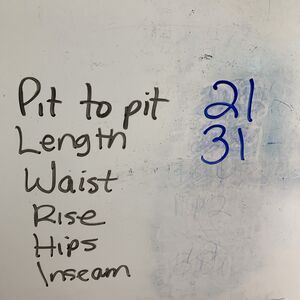 Pit to pit 21
Length 31
Waist
Rise
Hips
Inseam